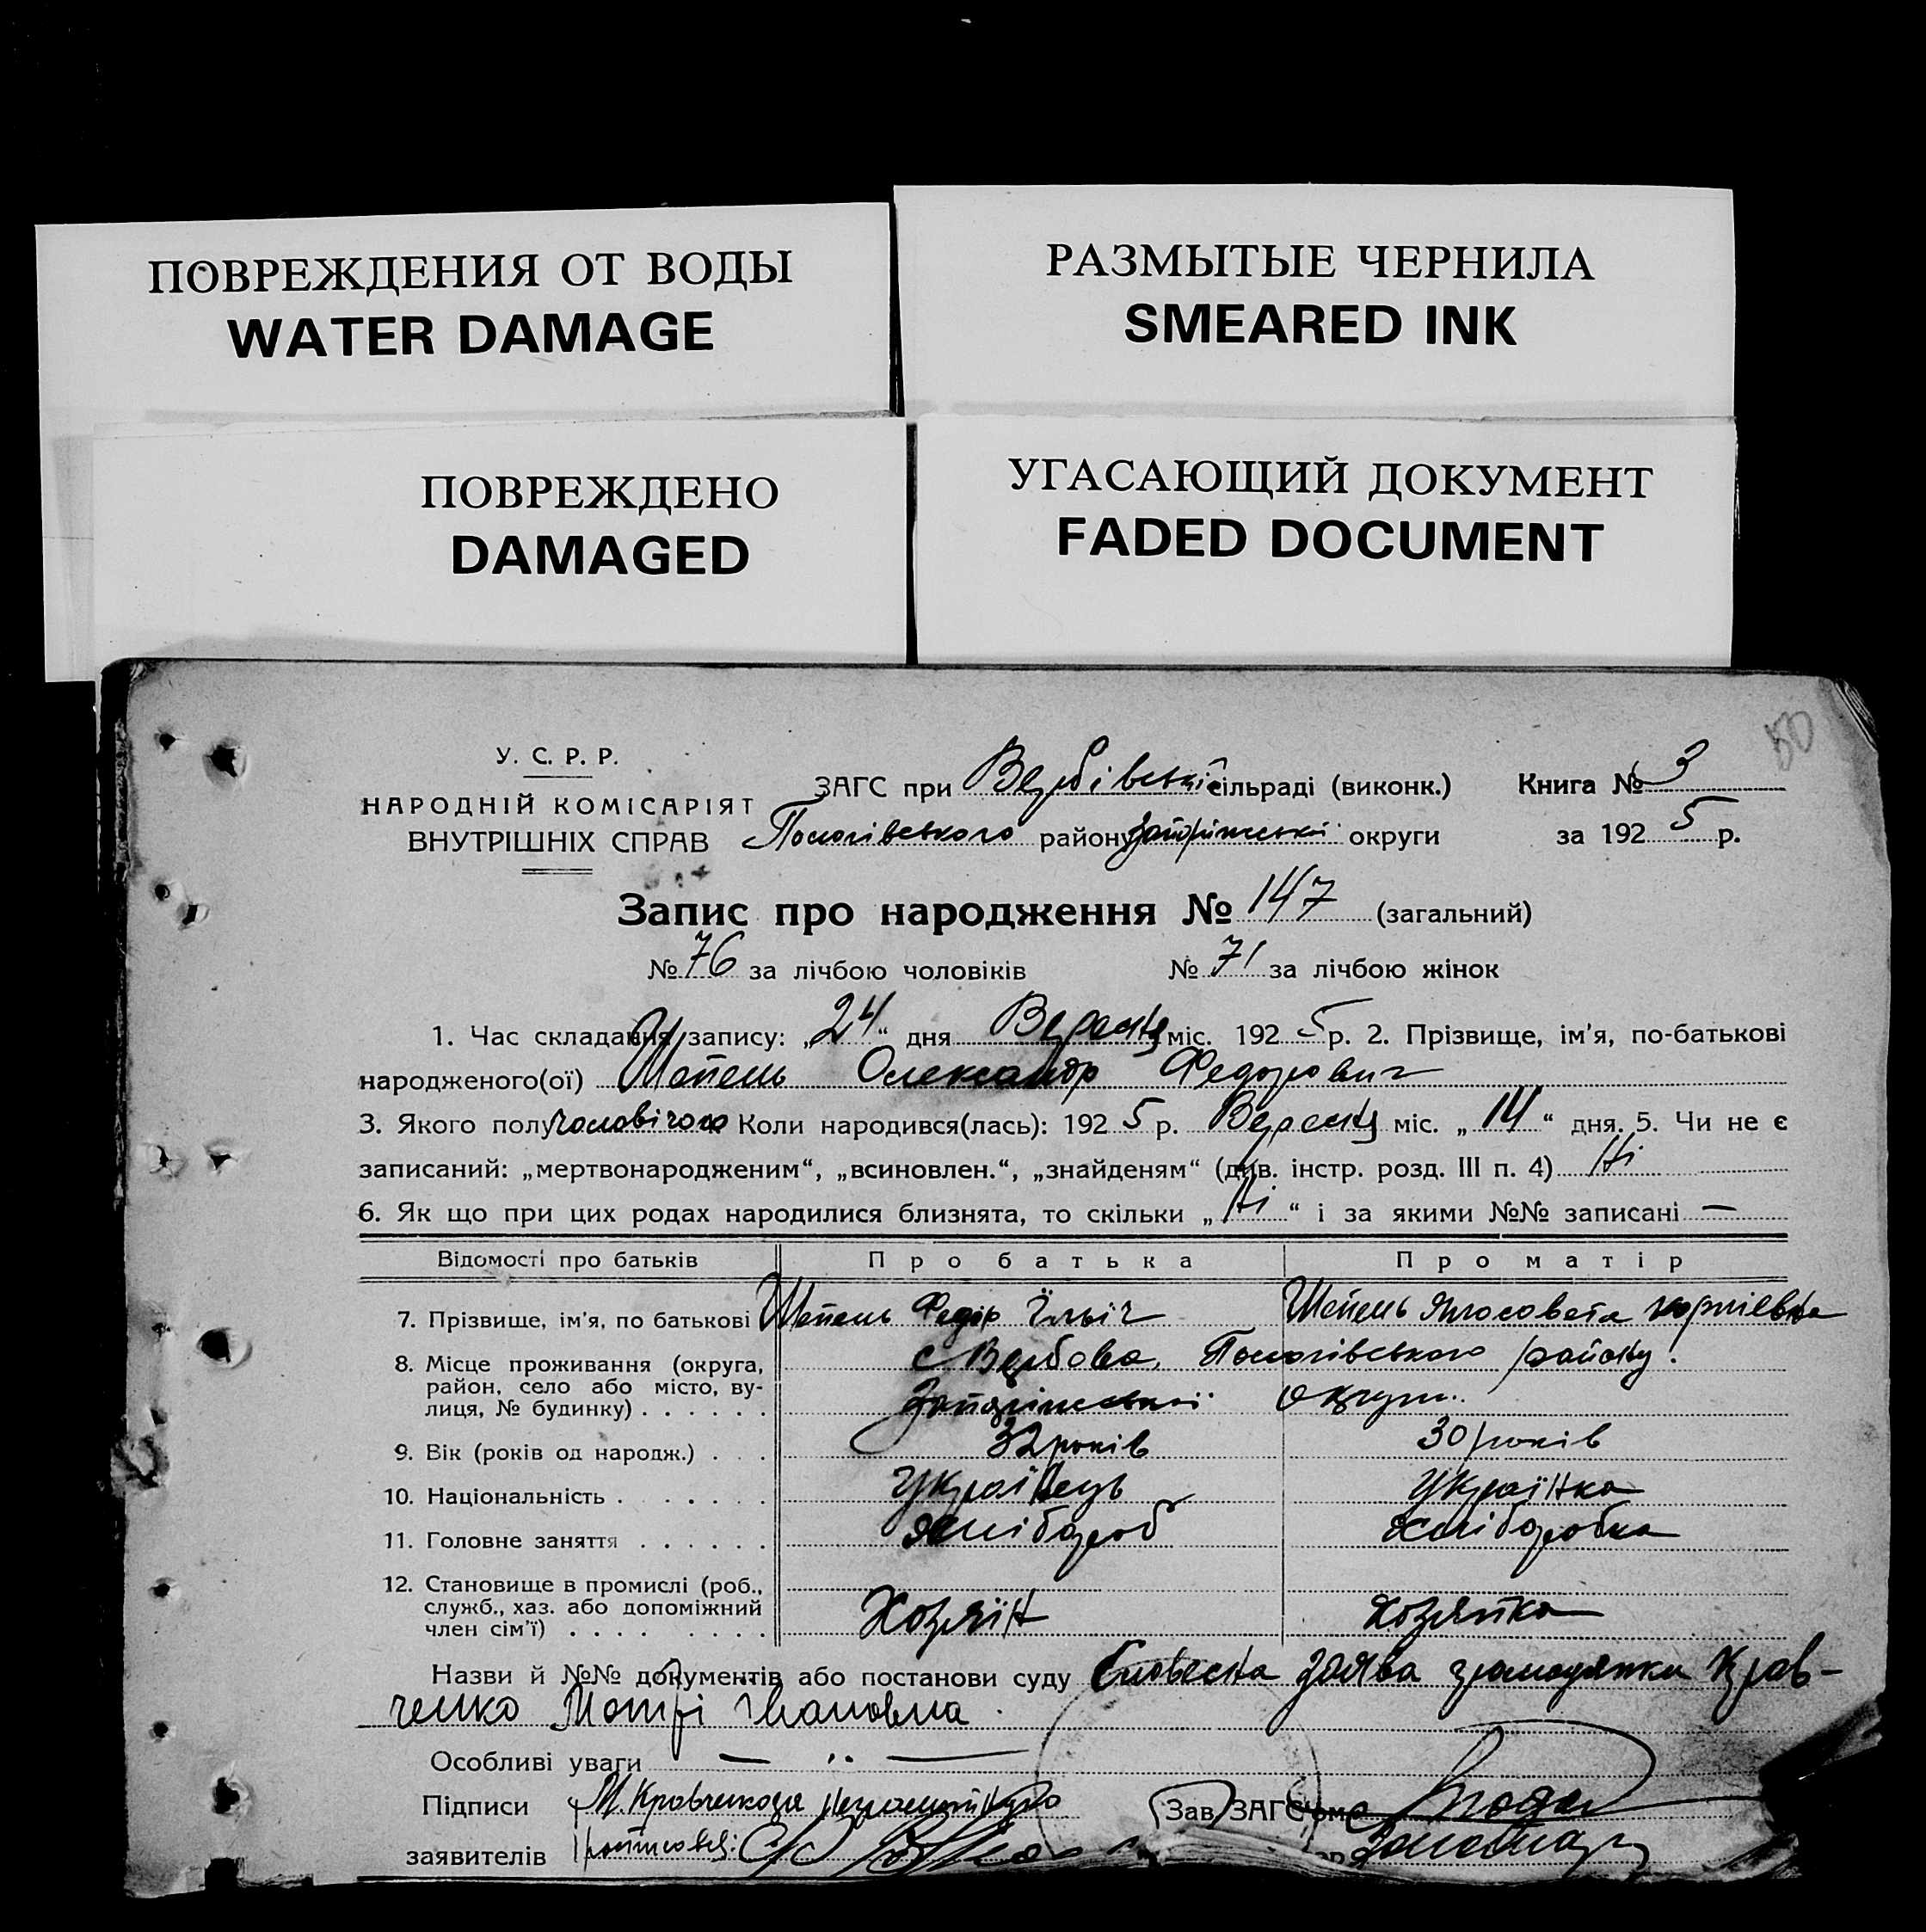 ПОВРЕЖДЕНИЯ ОТ ВОДЫ
WATER DAMAGE
РАЗМЫТЫЕ ЧЕРНИЛА
SMEARED INK
ПОВРЕЖДЕНО
DAMAGED
УГАСАЮЩИЙ ДОКУМЕНТ
FADED DOCUMENT
80
У. С. Р. Р.
НАРОДНІЙ КОМІСАРІЯТ
ВНУТРІШНІХ СПРАВ
ЗАГС при Вербівській сільраді (виконк.) Книга № 3
Пологівського району Запоріжської округи за 1925 р.
Запис про народження № 147 (загальний)
№ 76 за лічбою чоловіків № 71 за лічбою жінок
1. Час складання запису: „24“ дня Вересня міс. 1925 р. 2. Прізвище, ім'я, по-батькові
народженого(ої) Шепель Олександр Федорович
3. Якого полу чоловічого Коли народився(лась): 1925 р. Вересня міс. „14“ дня. 5. Чи не є
записаний: „мертвонародженим“, „всиновлен.“, „знайденям“ (див. інстр. розд. III п. 4) Ні
6. Як що при цих родах народилися близнята, то скільки „Ні“ і за якими №№ записані —
Відомості про батьків Про батька Про матір
7. Прізвище, ім'я, по батькові Шепель Федір Ілліч Шепель Корніевна
8. Місце проживання (округа, район, село або місто, вулиця, № будинку) . . . . . . с Вербова, Пологівського району.
Запоріжської округи.
9. Вік (років од народж.) . . . 32 років 30 років
10. Національність . . . . . . Українець Українка
11. Головне заняття . . . . . . Хлібороб Хліборобка
12. Становище в промислі (роб., служб., хаз. або допоміжний член сім'ї) . . . . . . . . Хозяїн Хозяйка
Назви й №№ документів або постанови суду Словесна заява громадянки Крав-
ченко Мотрі Івановна.
Особливі уваги —
Підписи М. Кравченко за неграмотную Зав. ЗАГС'ом
заявителів